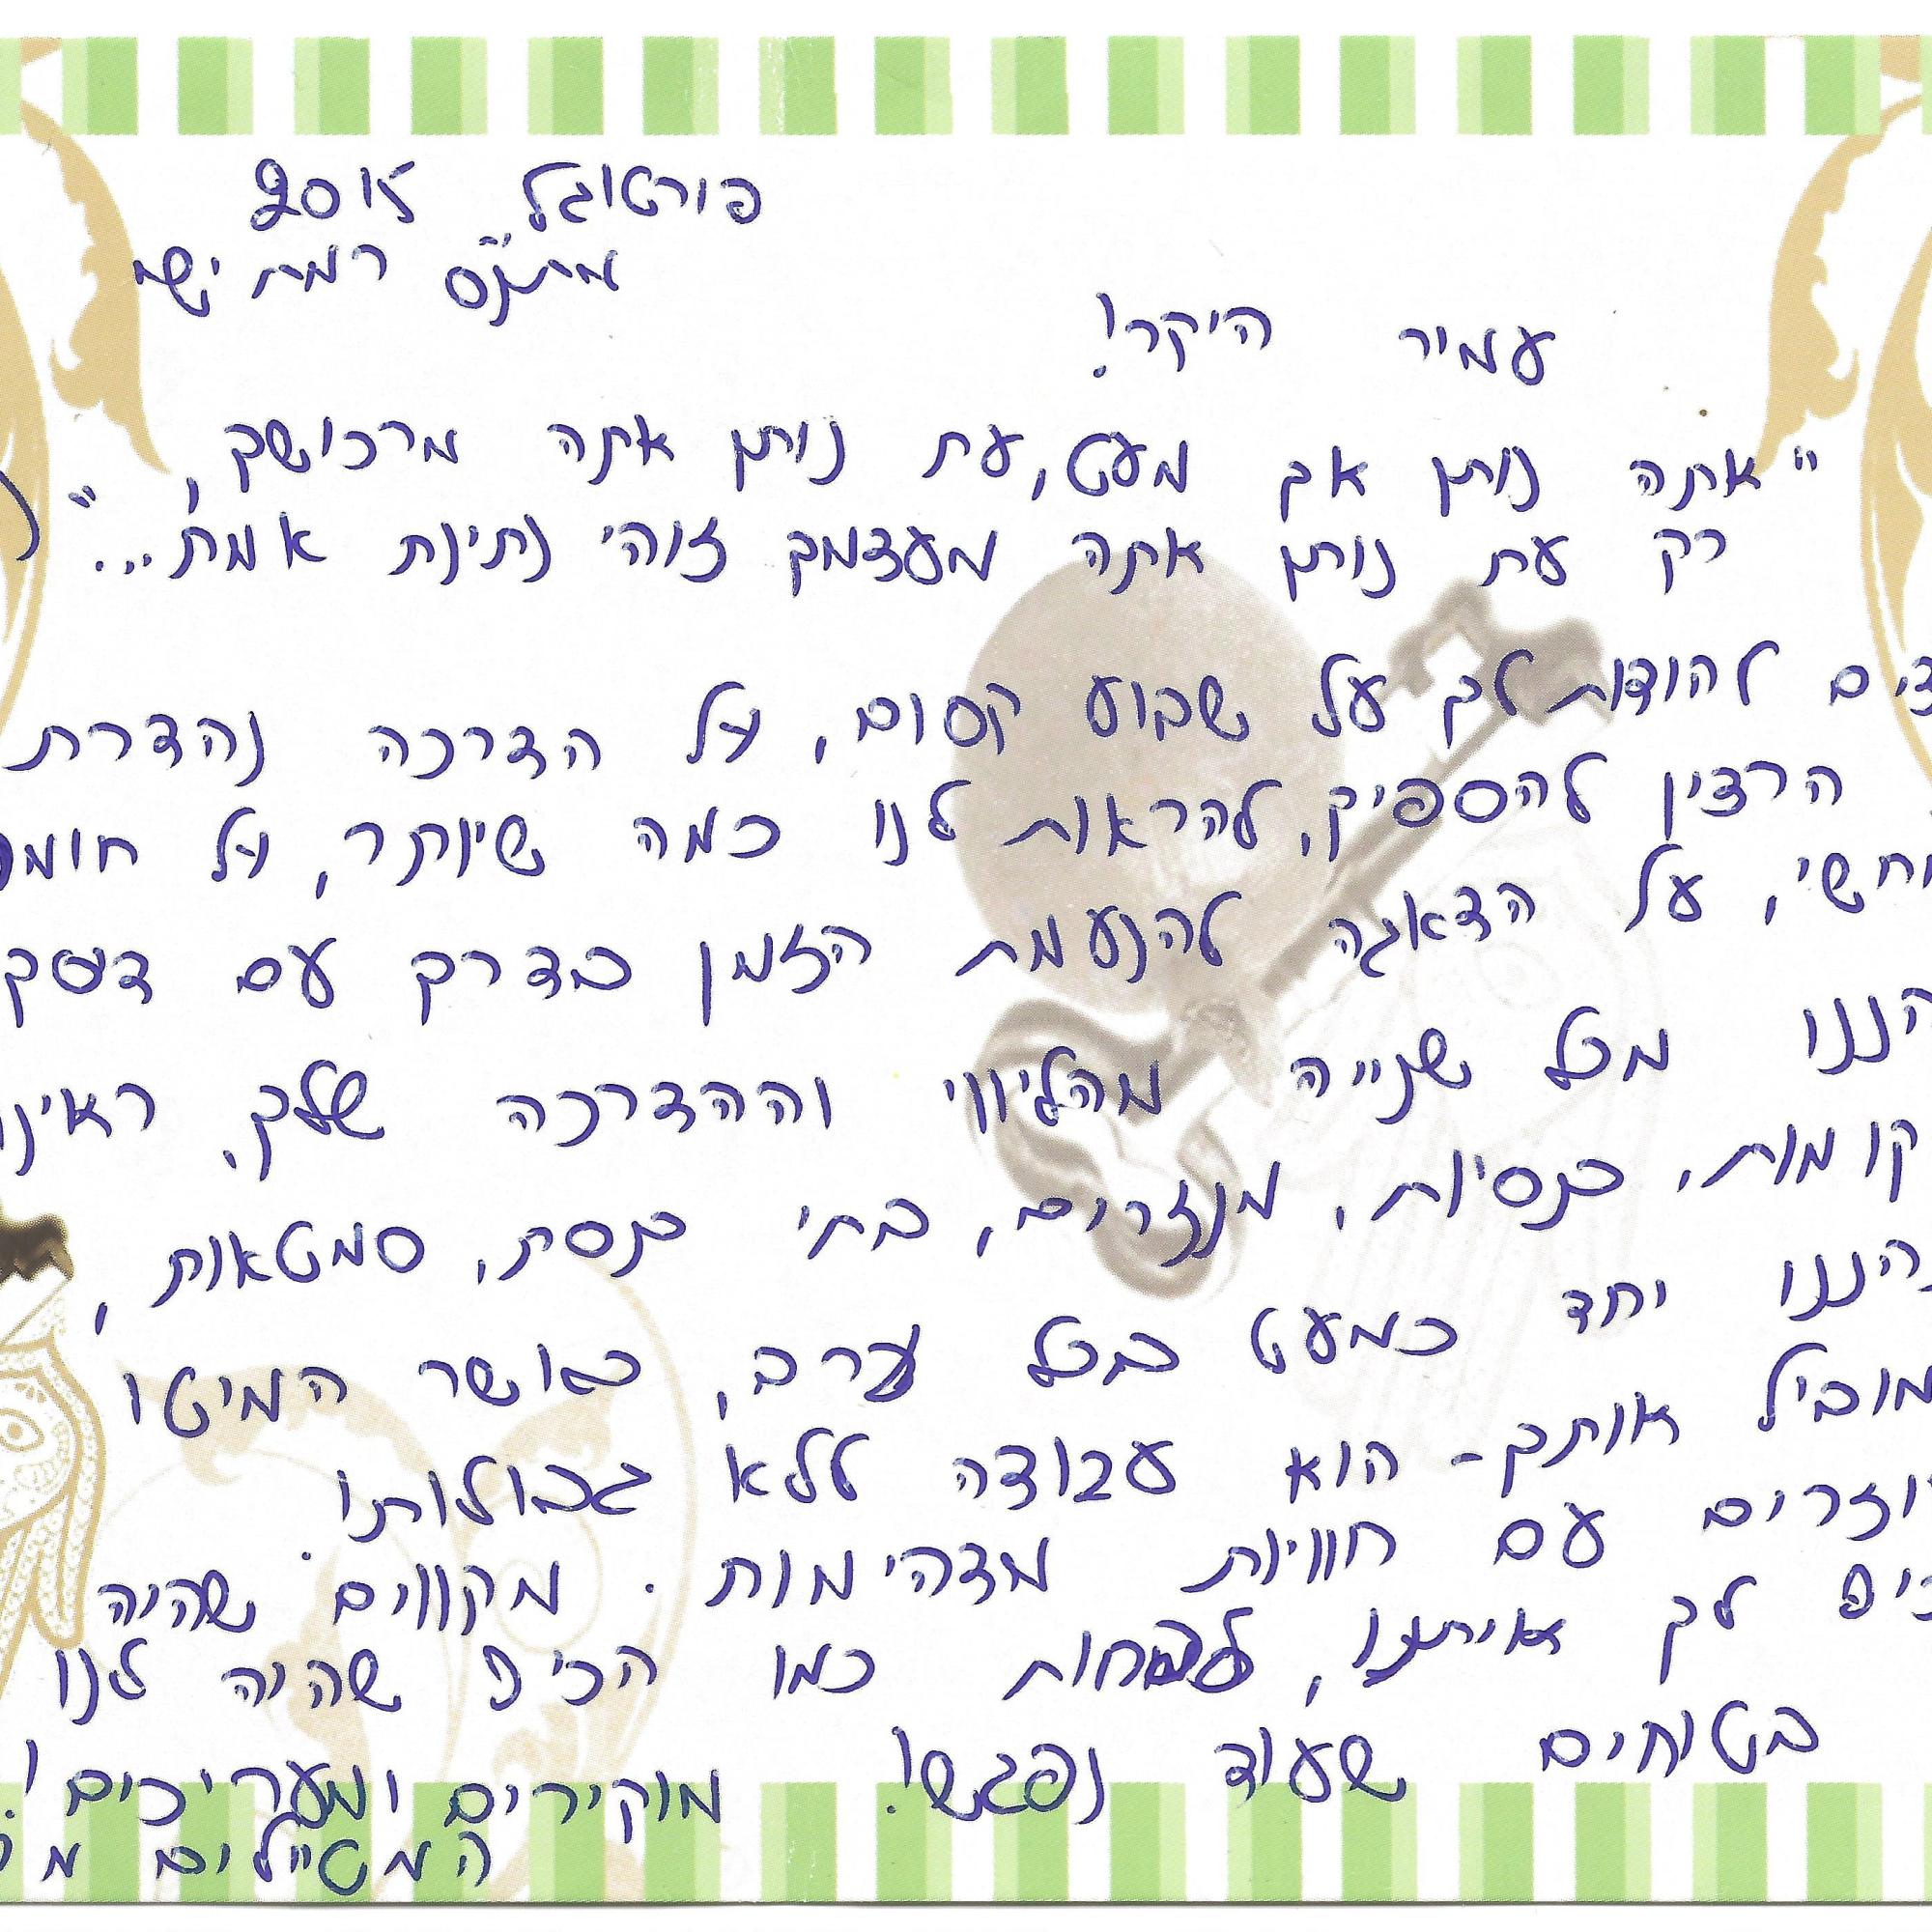 פורטוגל 2015
מתנ"ס רמת ישי
עמיר היקר!
"אתה נותן אך מעט, עת נותן אתה מרכושך,
רק עת נותן אתה מעצמך זוהי נתינת אמת..."
להודות לך על שבוע קסום, על הדרכה נהדרת
הרצין להספיק, להראות לנו כמה שיותר, על
על הדאגה להנעמת הזמן בדרך עם
מכל שנייה מהליווי וההדרכה שלך,
כנסיות, מנזרים, בתי כנסת, סמטאות,
יחד כמעט בכל ערב, כושר המיטו
אותך - הוא עבודה ללא גבולותיו.
עם חוויות מדהימות. מקווים שהיה
לך איתנו, לפחות כמו הכיף שהיה לנו
בטוחים שעוד נפגש! מוקירים ומעריכים!
המטיילים